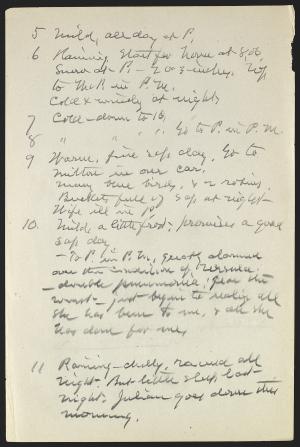 5 Mild, all day at P.
6 Raining, start for home at 8,06
Snow at P. - 2 or 3 inches.
to the R in P.M.
Cold & windy at night.
7 Cold - down to 16,
8 " " " Go to P. in P.M.
9 Warm, fine sap day, Go to
Milton in our car.
many blue birds, & robins.
Buckets full of sap at night -
Wife ill in P.
10. Mild, a little frost - promises a good
sap day
- To P. in P.M., greatly alarmed
over the condition of Ursula.
- double pneumonia; fear the
worst - just began to realize all
she has been to me, & all she
has done for me,
11 Raining - chilly, rained all
night - But little sleep last
night. Julian goes down this
morning.